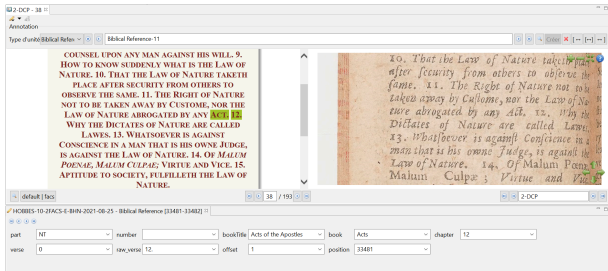 2-DCP - 38
Annotation
Type d'unité Biblical Refere
Biblical Reference-11
COUNSEL UPON ANY MAN AGAINST HIS WILL. 9.
HOW TO KNOW SUDDENLY WHAT IS THE LAW OF
NATURE. 10. THAT THE LAW OF NATURE TAKETH
PLACE AFTER SECURITY FROM OTHERS TO
OBSERVE THE SAME. 11. THE RIGHT OF NATURE
NOT TO BE TAKEN AWAY BY CUSTOME, NOR THE
LAW OF NATURE ABROGATED BY ANY ACT. 12.
WHY THE DICTATES OF NATURE ARE CALLED
LAWES. 13. WHATSOEVER IS AGAINST
CONSCIENCE IN A MAN THAT IS HIS OWNE JUDGE,
IS AGAINST THE LAW OF NATURE. 14. OF MALUM
POENAE, MALUM CULPAE; VIRTUE AND VICE. 15.
APTITUDE TO SOCIETY, FULFILLETH THE LAW OF
NATURE.
10. That the Law of Nature taketh place
after ſecurity from others to obſerve the
ſame. 11. The Right of Nature not to
taken away by Cuſtome, nor the Law of Na
ture abrogated by any Act. 12. Why the
Dictates of Nature are called Lawes
13. Whatſoever is againſt Conſcience in
man that is his owne Judge, is againſt the
Law of Nature. 14. Of Malum Pœnæ
Malum Culpæ; Virtue and Vice
default | facs
38 / 193
2-DCP
HOBBES-10-2FACS-E-BHN-2021-08-25 - Biblical Reference [33481-33482]
part NT number bookTitle Acts of the Apostles book Acts chapter 12
verse 0 raw_verse 12. offset 1 position 33481